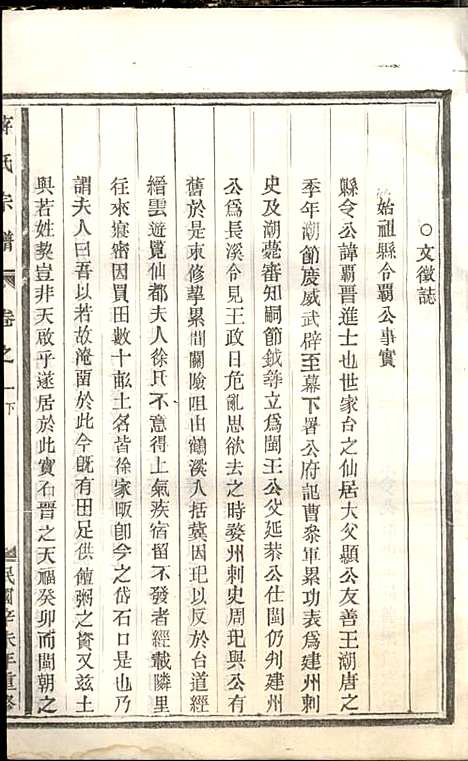 ○文徵誌
始祖縣令霸公事實
縣令公諱霸晉進士也世家台之仙居大父顯公友善王潮唐之
季年潮節度威武辟至幕下署公府記曹叅軍累功表為建州刺
史及潮薨審知嗣節鉞尋立為閩王公父延恭公仕閩仍州建
公為長溪令見王政日危亂思欲去之時婺州刺史周玘與公有
舊於是束修摯累間關險阻由鶴溪入括冀因玘以反於台道經
縉雲遊覧仙都夫人徐氏不意得上氣疾宿留不發者經載隣里
往來寖密因買田數十畝土名皆徐家畈卽今之岱石口是也乃
謂夫人曰吾以若故淹留於此今旣有田足供饘粥之資又玆土
與若姓契豈非天啟乎遂居於此實石晉之天福癸卯而閩朝之
氏宗譜
卷之一下
民國辛未年重修